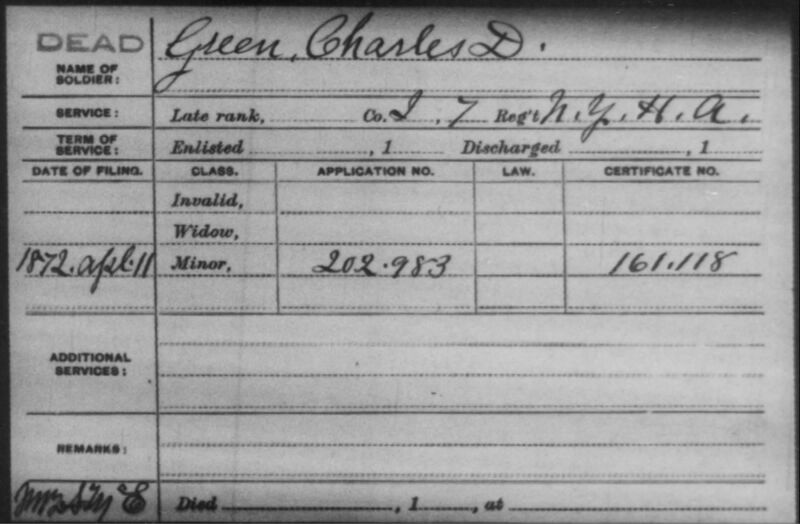 DEAD Green, Charles D.
NAME OF SOLDIER:
SERVICE: Late rank, Co. I, 7 Reg't N.Y.H.A.
TERM OF SERVICE: Enlisted , 1 Discharged , 1
DATE OF FILING. CLASS. APPLICATION NO. LAW. CERTIFICATE NO.
Invalid,
Widow,
1872. Apl. 11 Minor, 202.983 161.118
ADDITIONAL SERVICES:
REMARKS:
Died , 1 , at